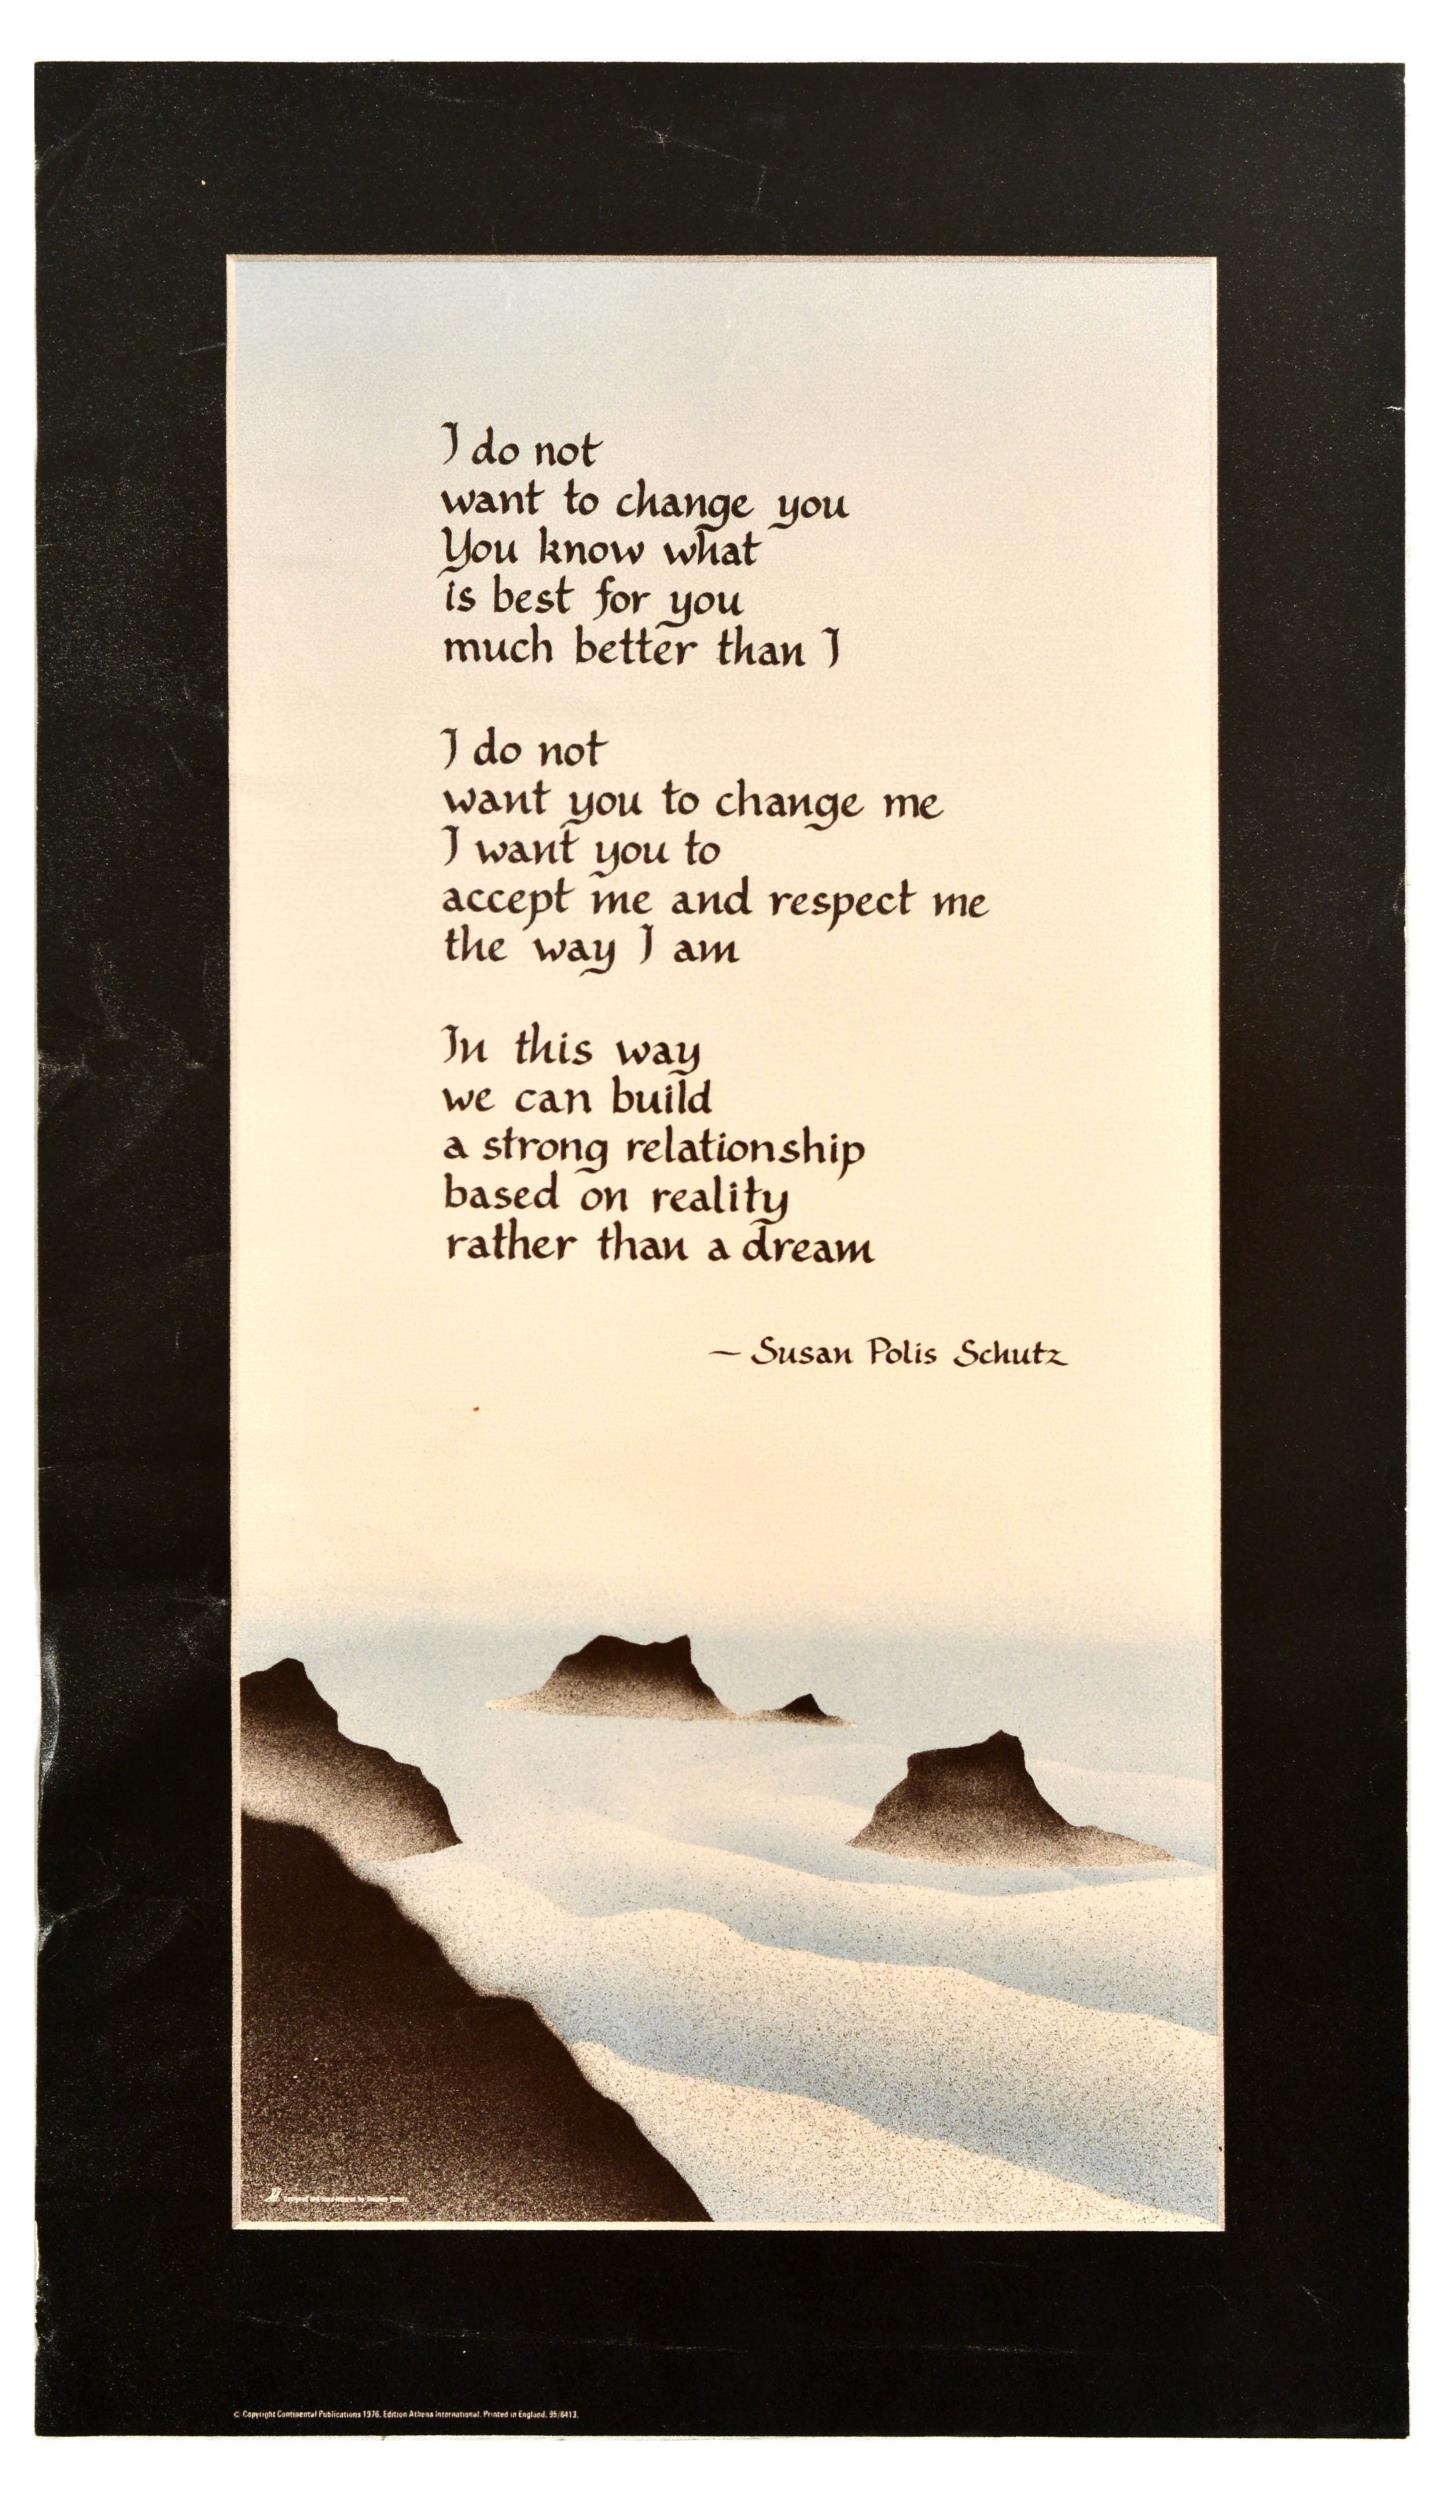 I do not
want to change you
You know what
is best for you
much better than I
I do not
want you to change me
I want you to
accept me and respect me
the way I am
In this way
we can build
a strong relationship
based on reality
rather than a dream
— Susan Polis Schutz
Designed and hand-lettered by Stephen Schutz
© Copyright Continental Publications 1976. Edition Athena International. Printed in England. 95/6413.